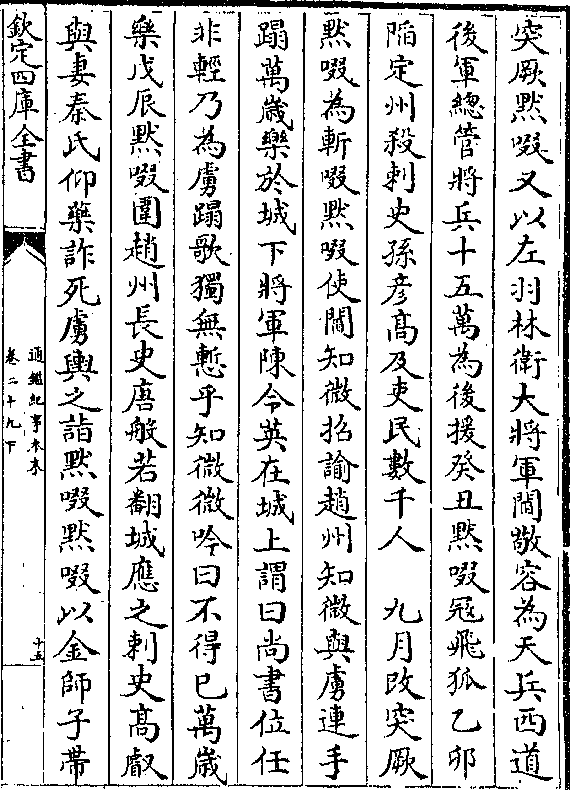 突厥黙啜又以左羽林衛大將軍閻敬容為天兵西道
後軍總管將兵十五萬為後援癸丑黙啜冦飛狐乙卯
陷定州殺刺史孫彦髙及吏民數千人　九月改突厥
黙啜為斬啜黙啜使閻知微招諭趙州知微與虜連手
蹋萬歲樂於城下將軍陳令英在城上謂曰尚書位任
非輕乃為虜蹋歌獨無慙乎知微微吟曰不得已萬歲
樂戊辰黙啜圍趙州長史唐般若翻城應之刺史髙叡
與妻秦氏仰藥詐死虜輿之詣黙啜黙啜以金師子帶
欽定四庫全書
通鑑紀事本末
卷二十九下
十五